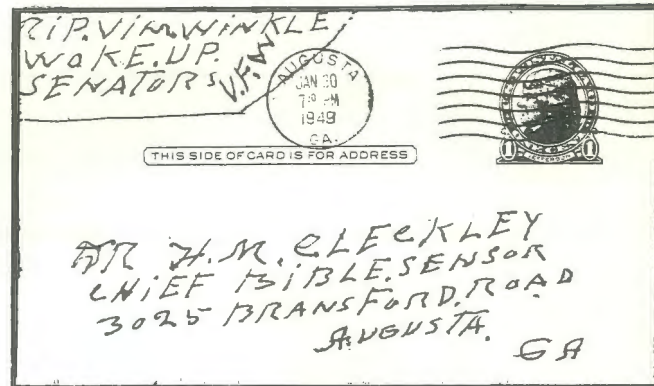 RIP. VIM. WINKLE
WOKE. UP.
SENATORS V.F.W.
AUGUSTA
JAN 30
7 30 PM
1949
GA.
THIS SIDE OF CARD IS FOR ADDRESS
JEFFERSON
1 1
DR H. M. CLECKLEY
CHIEF BIBLE. SENSOR
3025 BRANSFORD. ROAD
AUGUSTA.
GA